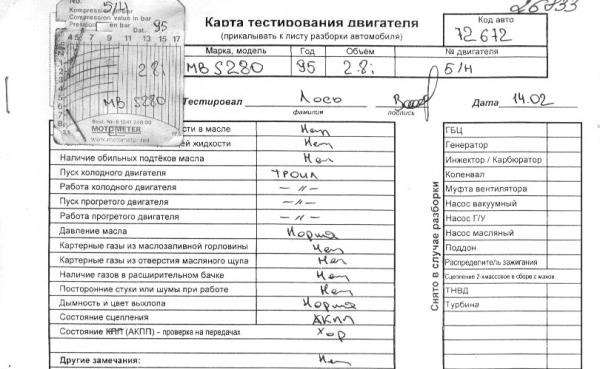 Карта тестирования двигателя
(прикалывать к листу разборки автомобиля)
Код авто
72672
Kompression in bar
Compression value in bar
Pression en bar
Б/Н
Dat.
95
4 5 7 9 11 13 15 17
2.8i
MB S280
MOTOMETER
www.motometer.net
Марка, модель
Год
Объём
№ двигателя
MB S280
95
2.8i
Б/Н
Тестировал
Лось
фамилия
подпись
Дата 14.02
сти в масле Нет
ей жидкости Нет
Наличие обильных подтёков масла Нет
Пуск холодного двигателя троил
Работа холодного двигателя —"—
Пуск прогретого двигателя —"—
Работа прогретого двигателя —"—
Давление масла Норма
Картерные газы из маслозаливной горловины Нет
Картерные газы из отверстия масляного щупа Нет
Наличие газов в расширительном бачке Нет
Посторонние стуки или шумы при работе Нет
Дымность и цвет выхлопа Норма
Состояние сцепления АКПП
Состояние КПП (АКПП) - проверка на передачах Хор
Другие замечания: Нет
Снято в случае разборки
ГБЦ
Генератор
Инжектор / Карбюратор
Коленвал
Муфта вентилятора
Насос вакуумный
Насос Г/У
Насос масляный
Поддон
Распределитель зажигания
Сцепление 2-хмассовое в сборе с махов.
ТНВД
Турбина